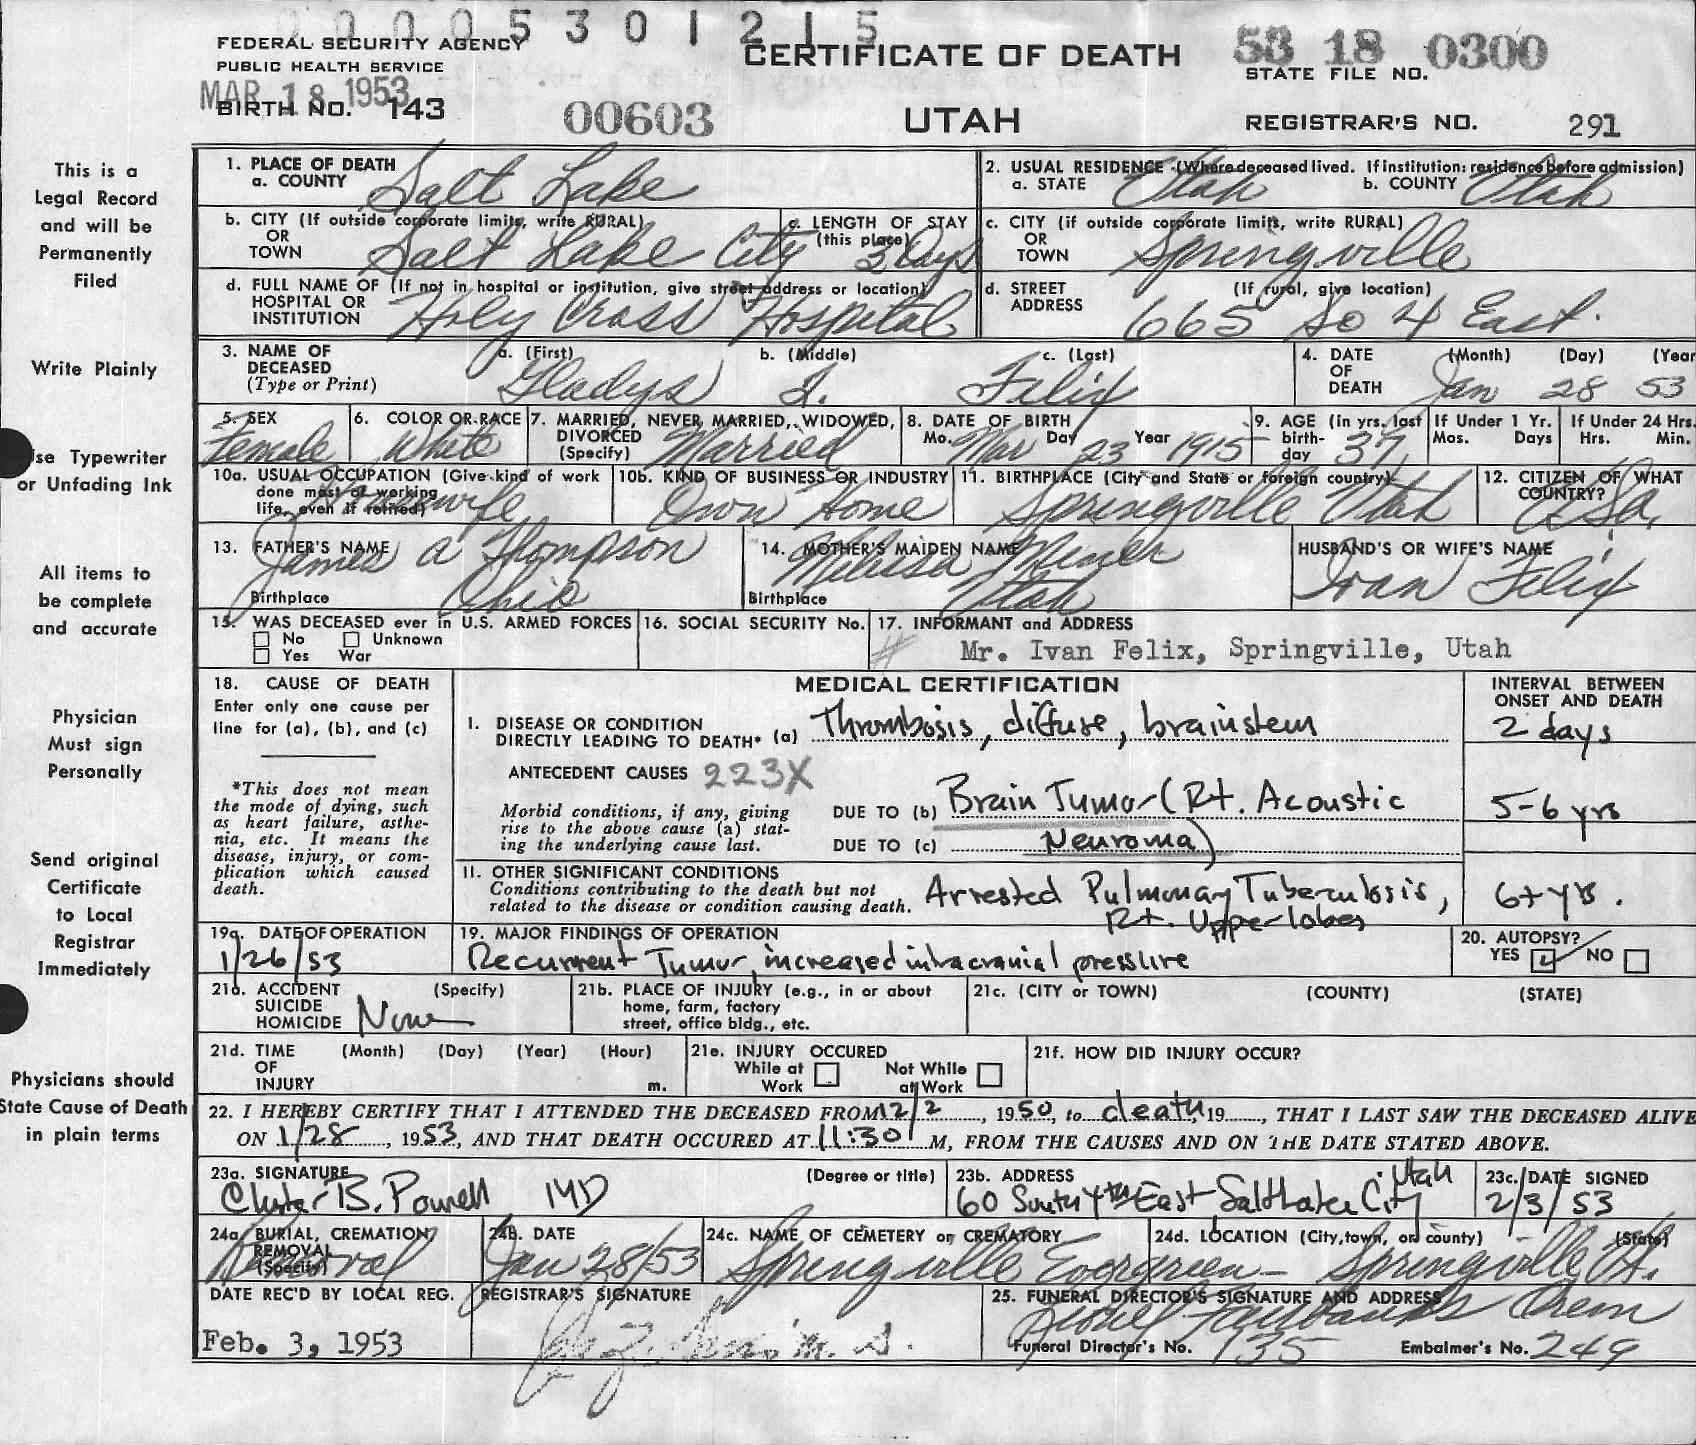 00005301215
FEDERAL SECURITY AGENCY
PUBLIC HEALTH SERVICE
CERTIFICATE OF DEATH
53 18 0300
STATE FILE NO.
MAR 18 1953
BIRTH NO. 143
00603
UTAH
REGISTRAR'S NO. 291
This is a
Legal Record
and will be
Permanently
Filed
Write Plainly
se Typewriter
or Unfading Ink
All items to
be complete
and accurate
Physician
Must sign
Personally
Send original
Certificate
to Local
Registrar
Immediately
Physicians should
State Cause of Death
in plain terms
1. PLACE OF DEATH
a. COUNTY Salt Lake
2. USUAL RESIDENCE (Where deceased lived. If institution: residence before admission)
a. STATE Utah b. COUNTY Utah
b. CITY (If outside corporate limits, write RURAL)
OR
TOWN Salt Lake City
c. LENGTH OF STAY
(this place) 3 Days
c. CITY (if outside corporate limits, write RURAL)
OR
TOWN Springville
d. FULL NAME OF (If not in hospital or institution, give street address or location)
HOSPITAL OR
INSTITUTION Holy Cross Hospital
d. STREET (If rural, give location)
ADDRESS 665 So 4 East.
3. NAME OF
DECEASED
(Type or Print)
a. (First) b. (Middle) c. (Last)
Gladys Felix
4. DATE
OF
DEATH
(Month) (Day) (Year
Jan 28 53
5. SEX
Female
6. COLOR OR RACE
White
7. MARRIED, NEVER MARRIED, WIDOWED,
DIVORCED
(Specify) Married
8. DATE OF BIRTH
Mo. Mar Day 23 Year 1915
9. AGE (in yrs. last
birth-
day 37
If Under 1 Yr.
Mos. Days
If Under 24 Hrs.
Hrs. Min.
10a. USUAL OCCUPATION (Give kind of work
done most of working
life, even if retired) Housewife
10b. KIND OF BUSINESS OR INDUSTRY
Own Home
11. BIRTHPLACE (City and State or foreign country)
Springville Utah
12. CITIZEN OF WHAT
COUNTRY?
USA.
13. FATHER'S NAME
James A Thompson
Birthplace Ohio
14. MOTHER'S MAIDEN NAME
Melissa Miner
Birthplace Utah
HUSBAND'S OR WIFE'S NAME
Ivan Felix
15. WAS DECEASED ever in U.S. ARMED FORCES
No Unknown
Yes War
16. SOCIAL SECURITY No.
17. INFORMANT and ADDRESS
# Mr. Ivan Felix, Springville, Utah
18. CAUSE OF DEATH
Enter only one cause per
line for (a), (b), and (c)
*This does not mean
the mode of dying, such
as heart failure, asthe-
nia, etc. It means the
disease, injury, or com-
plication which caused
death.
MEDICAL CERTIFICATION
INTERVAL BETWEEN
ONSET AND DEATH
I. DISEASE OR CONDITION
DIRECTLY LEADING TO DEATH* (a) Thrombosis, diffuse, brainstem
2 days
ANTECEDENT CAUSES 223X
Morbid conditions, if any, giving
rise to the above cause (a) stat-
ing the underlying cause last.
DUE TO (b) Brain Tumor (Rt. Acoustic
5-6 yrs
DUE TO (c) Neuroma)
II. OTHER SIGNIFICANT CONDITIONS
Conditions contributing to the death but not
related to the disease or condition causing death.
Arrested Pulmonary Tuberculosis,
Rt. Upper lobes
6+ yrs.
19a. DATE OF OPERATION
1/26/53
19. MAJOR FINDINGS OF OPERATION
Recurrent Tumor, increased intracranial pressure
20. AUTOPSY?
YES NO
21a. ACCIDENT (Specify)
SUICIDE
HOMICIDE None
21b. PLACE OF INJURY (e.g., in or about
home, farm, factory
street, office bldg., etc.
21c. (CITY or TOWN) (COUNTY) (STATE)
21d. TIME (Month) (Day) (Year) (Hour)
OF
INJURY m.
21e. INJURY OCCURED
While at Work
Not While at Work
21f. HOW DID INJURY OCCUR?
22. I HEREBY CERTIFY THAT I ATTENDED THE DECEASED FROM 12/2, 1950, to death, 19, THAT I LAST SAW THE DECEASED ALIVE
ON 1/28, 1953, AND THAT DEATH OCCURED AT 11:30 M, FROM THE CAUSES AND ON THE DATE STATED ABOVE.
23a. SIGNATURE (Degree or title)
Chester B. Powell MD
23b. ADDRESS
60 South 4th East, Salt Lake City Utah
23c. DATE SIGNED
2/3/53
24a. BURIAL, CREMATION
REMOVAL
(Specify)
Removal
24b. DATE
Jan 28/53
24c. NAME OF CEMETERY or CREMATORY
Springville Evergreen
24d. LOCATION (City, town, or county) (State)
Springville Ut.
DATE REC'D BY LOCAL REG.
Feb. 3, 1953
REGISTRAR'S SIGNATURE
25. FUNERAL DIRECTOR'S SIGNATURE AND ADDRESS
Fairbanks Orem
Funeral Director's No. 735
Embalmer's No. 249